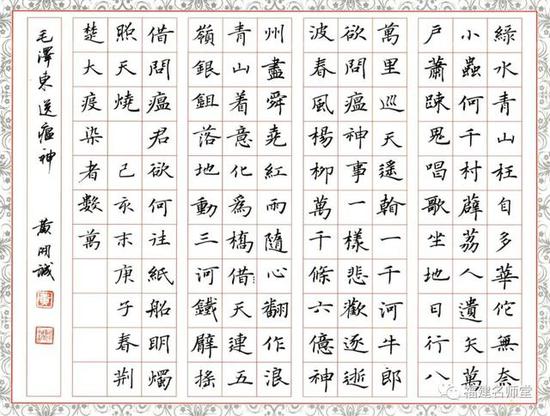 綠水青山枉自多華佗無奈
小蟲何千村薜荔人遺矢萬
戶蕭踈鬼唱歌坐地日行八
萬里巡天遙看一千河牛郎
欲問瘟神事一樣悲歡逐逝
波春風楊柳萬千條六億神
州盡舜堯紅雨隨心翻作浪
青山着意化爲橋借天連五
嶺銀鉏落地動三河鐵臂搖
借問瘟君欲何往紙船明燭
照天燒 己亥末庚子春荆
楚大疫染者數萬
毛澤東送瘟神 黃開誠
福建名师堂